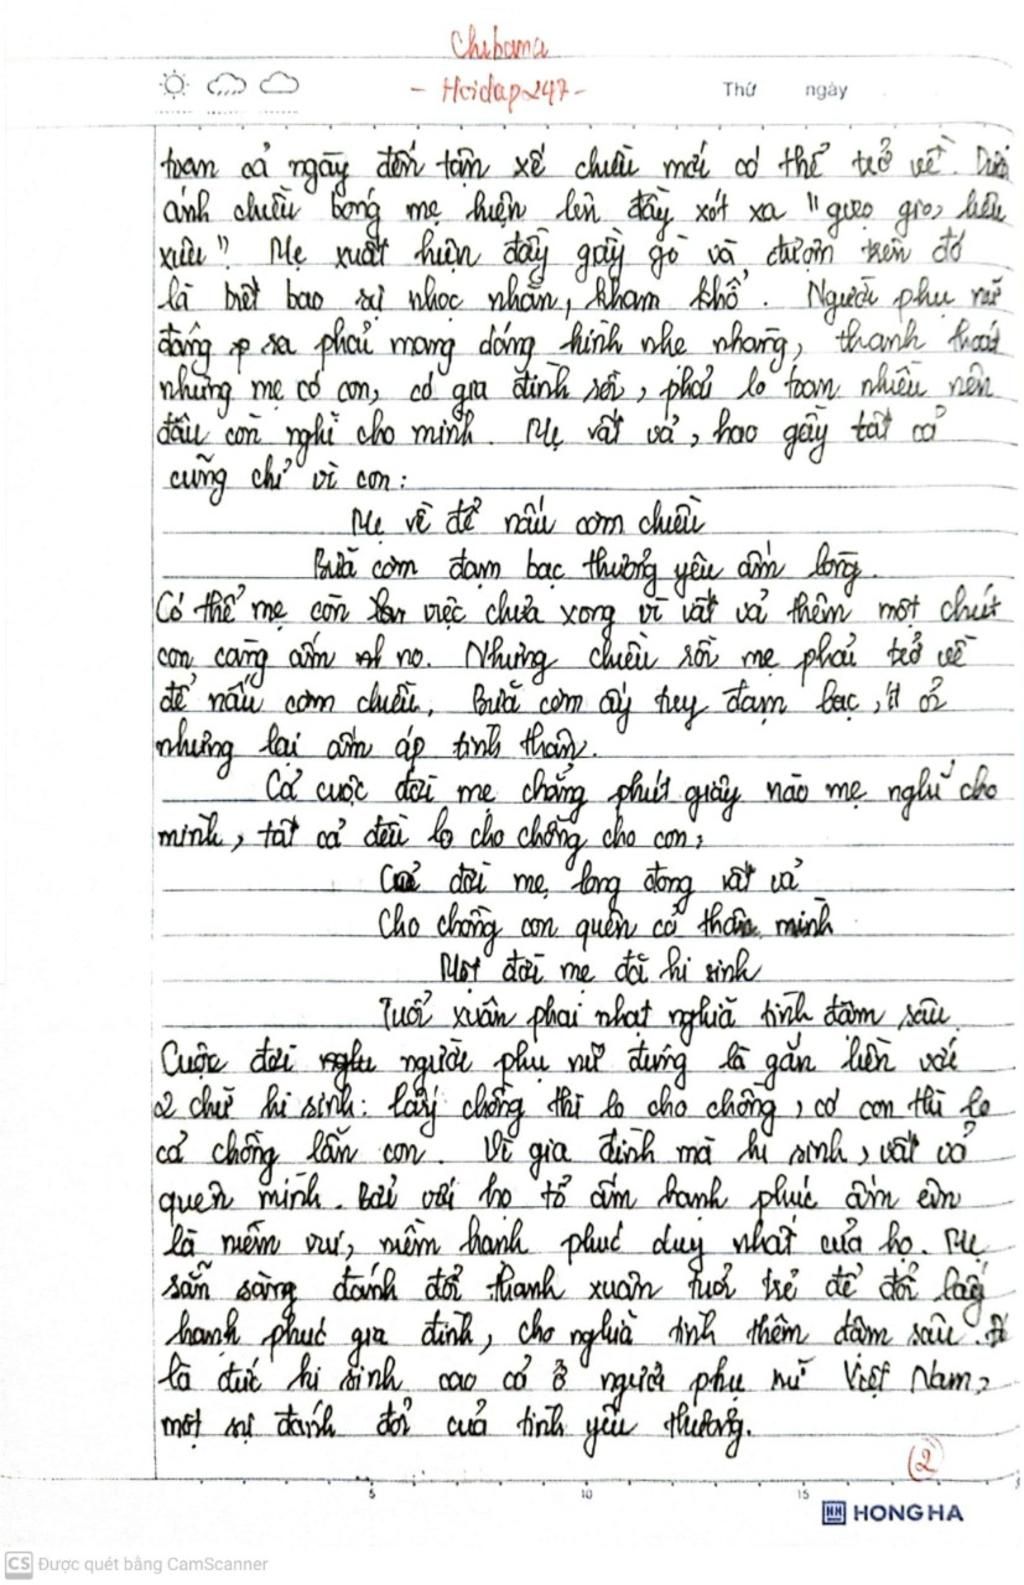 Chibama
- Hoidap247-
Thứ ngày
toan cả ngày đến tận xế chiều mới có thể trở về. Dưới
ánh chiều bóng mẹ hiện lên đầy xót xa "gược gio, liêu
xiêu". Mẹ xuất hiện đầy gầy gò và đượm trên đó
là biết bao sự nhọc nhằn, kham khổ. Người phụ nữ
đáng sa phải mang dáng hình nhẹ nhàng, thanh thoát
nhưng mẹ có con, có gia đình rồi, phải lo toan nhiều nên
đâu còn nghĩ cho mình. Mẹ vất vả, hao gầy tất cả
cũng chỉ vì con:
Mẹ về để nấu cơm chiều
Bữa cơm đạm bạc thương yêu ấm lòng.
Có thể mẹ còn việc chưa xong vì vất vả thêm một chút
con càng ấm no. Nhưng chiều rồi mẹ phải trở về
để nấu cơm chiều. Bữa cơm ấy tuy đạm bạc, ít ỏi
nhưng lại ấm áp tình thân.
Cả cuộc đời mẹ chẳng phút giây nào mẹ nghĩ cho
mình, tất cả đều lo cho chồng cho con:
Cả đời mẹ long đong vất vả
Cho chồng con quên cả thân mình
Một đời mẹ đã hi sinh
Tuổi xuân phai nhạt nghĩa tình đậm sâu
Cuộc đời người phụ nữ đúng là gắn liền với
2 chữ hi sinh: lấy chồng thì lo cho chồng, có con thì lo
cả chồng lẫn con. Vì gia đình mà hi sinh, vất vả
quên mình. Bởi với họ tổ ấm hạnh phúc ấm êm
là niềm vui, niềm hạnh phúc duy nhất của họ. Mẹ
sẵn sàng đánh đổi thanh xuân tuổi trẻ để đổi lấy
hạnh phúc gia đình, cho nghĩa tình thêm đậm sâu. Đó
là đức hi sinh cao cả ở người phụ nữ Việt Nam,
một sự đánh đổi của tình yêu thương.
2
5 10 15
HH HONG HA
CS Được quét bằng CamScanner